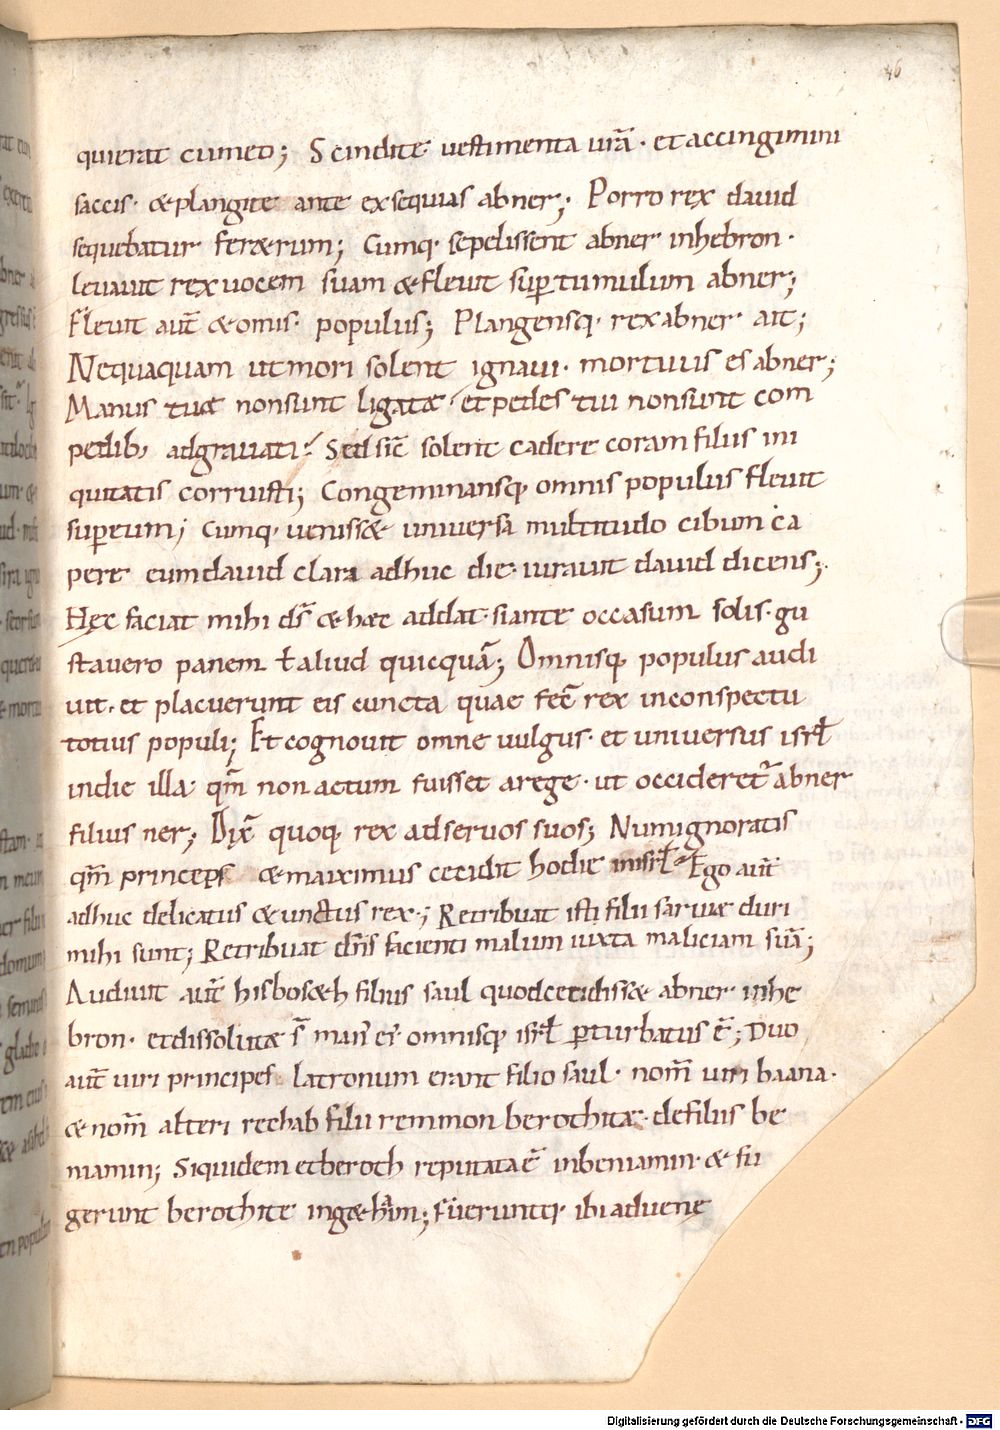 46
quierat cumeo; Scindite uestimenta urā · et accingimini
saccis · & plangite ante exsequias abner; Porro rex dauid
sequebatur feraerum; Cumq· sepelissent abner inhebron ·
leuauit rex uocem suam & fleuit sup tumulum abner;
Fleuit aut̄ & omis· populus; Plangensq· rex abner · ait;
Nequaquam ut mori solent ignaui · mortuus es abner;
Manus tuae non sunt ligatae · et pedes tui non sunt com
pedib; adgrauati · Sed sic̄ solent cadere coram filiis ini
quitatis corruisti; Congeminansq· omnis populus fleuit
sup eum; Cumq· uenisset uniuersa multitudo cibum ca
pere cum dauid clara adhuc die · iurauit dauid dicens;
Hęc faciat mihi ds̄ & haec addat · si ante occasum solis · gu
stauero panem ł aliud quicquā; Omnisq· populus audi
uit · et placuerunt eis cuncta quae fec̄ rex inconspectu
totius populi; Et cognouit omne uulgus · et uniuersus isrł
indie illa · qm̄ non actum fuisset arege · ut occideret̄ abner
filius ner; Dix̄ quoq· rex adseruos suos; Num ignoratis
qm̄ princeps & maximus cecidit hodie inisrł · Ego aut̄
adhuc delicatus & unctus rex; Retribuat isti filii saruiae duri
mihi sunt; Retribuat dn̄s facienti malum iuxta maliciam suā;
Audiuit aut̄ hisboseth filius saul quod cecidisset abner · inhe
bron · et dissolutae s̄ man' ei' omnisq· isrł pturbatus ē; Duo
aut̄ uiri principes latronum erant filio saul · nom̄ uiri baana ·
& nom̄ alteri rechab filii remmon berothitae · de filiis be
niamin; Siquidem et beroth reputata ē inbeniamin · & fu
gerunt berothite ingethaim; fuerunt ibi aduenę
Digitalisierung gefördert durch die Deutsche Forschungsgemeinschaft - DFG